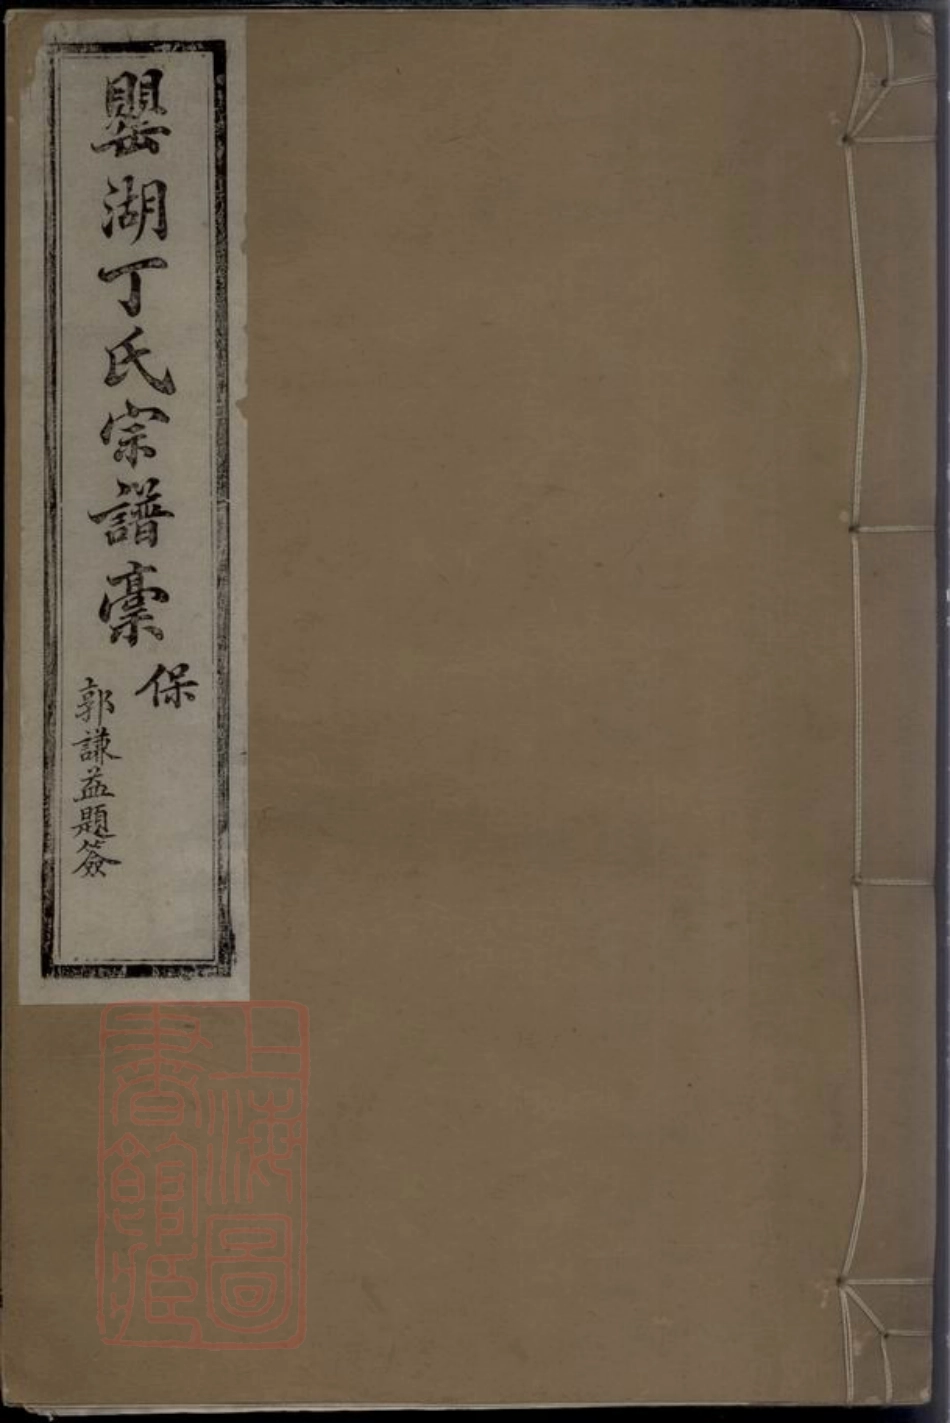 罌湖丁氏宗譜稾
保
郭謙益題簽
上海圖
書館藏